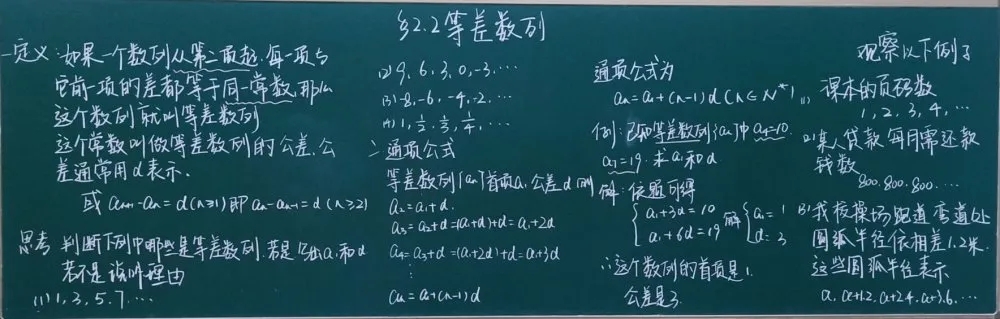 §2.2等差数列
一定义:如果一个数列从第二项起,每一项与
它前一项的差都等于同一常数,那么
这个数列就叫等差数列
这个常数叫做等差数列的公差,公
差通常用d表示.
或 aₙ₊₁-aₙ=d(n≥1)即aₙ-aₙ₋₁=d(n≥2)
思考 判断下列中哪些是等差数列.若是 a₁和d
若不是 说明理由
(1)1,3,5.7.…
(2)9,6,3,0,-3,…
(3)-8,-6,-4,-2,…
(4)1,½,⅓,¼,…
二通项公式
等差数列{aₙ}首项a₁公差d则
a₂=a₁+d.
a₃=a₂+d=(a₁+d)+d=a₁+2d
a₄=a₃+d=(a₁+2d)+d=a₁+3d
⋮
aₙ=a₁+(n-1)d
通项公式为
aₙ=a₁+(n-1)d(n∈N*)
例:已知等差数列{aₙ}中a₄=10.
a₇=19.求a₁和d
解:依题可得
{a₁+3d=10 解{a₁=1
a₁+6d=19 d=3
∴这个数列的首项是1.
公差是3.
观察以下例子
(1)课本的页码数
1,2,3,4,…
(2)某人贷款每月需还款
钱数
800.800.800.…
(3)我校操场跑道弯道处
圆弧半径依相差1.2米.
这些圆弧半径表示
a,a+1.2.a+2.4.a+3.6.…